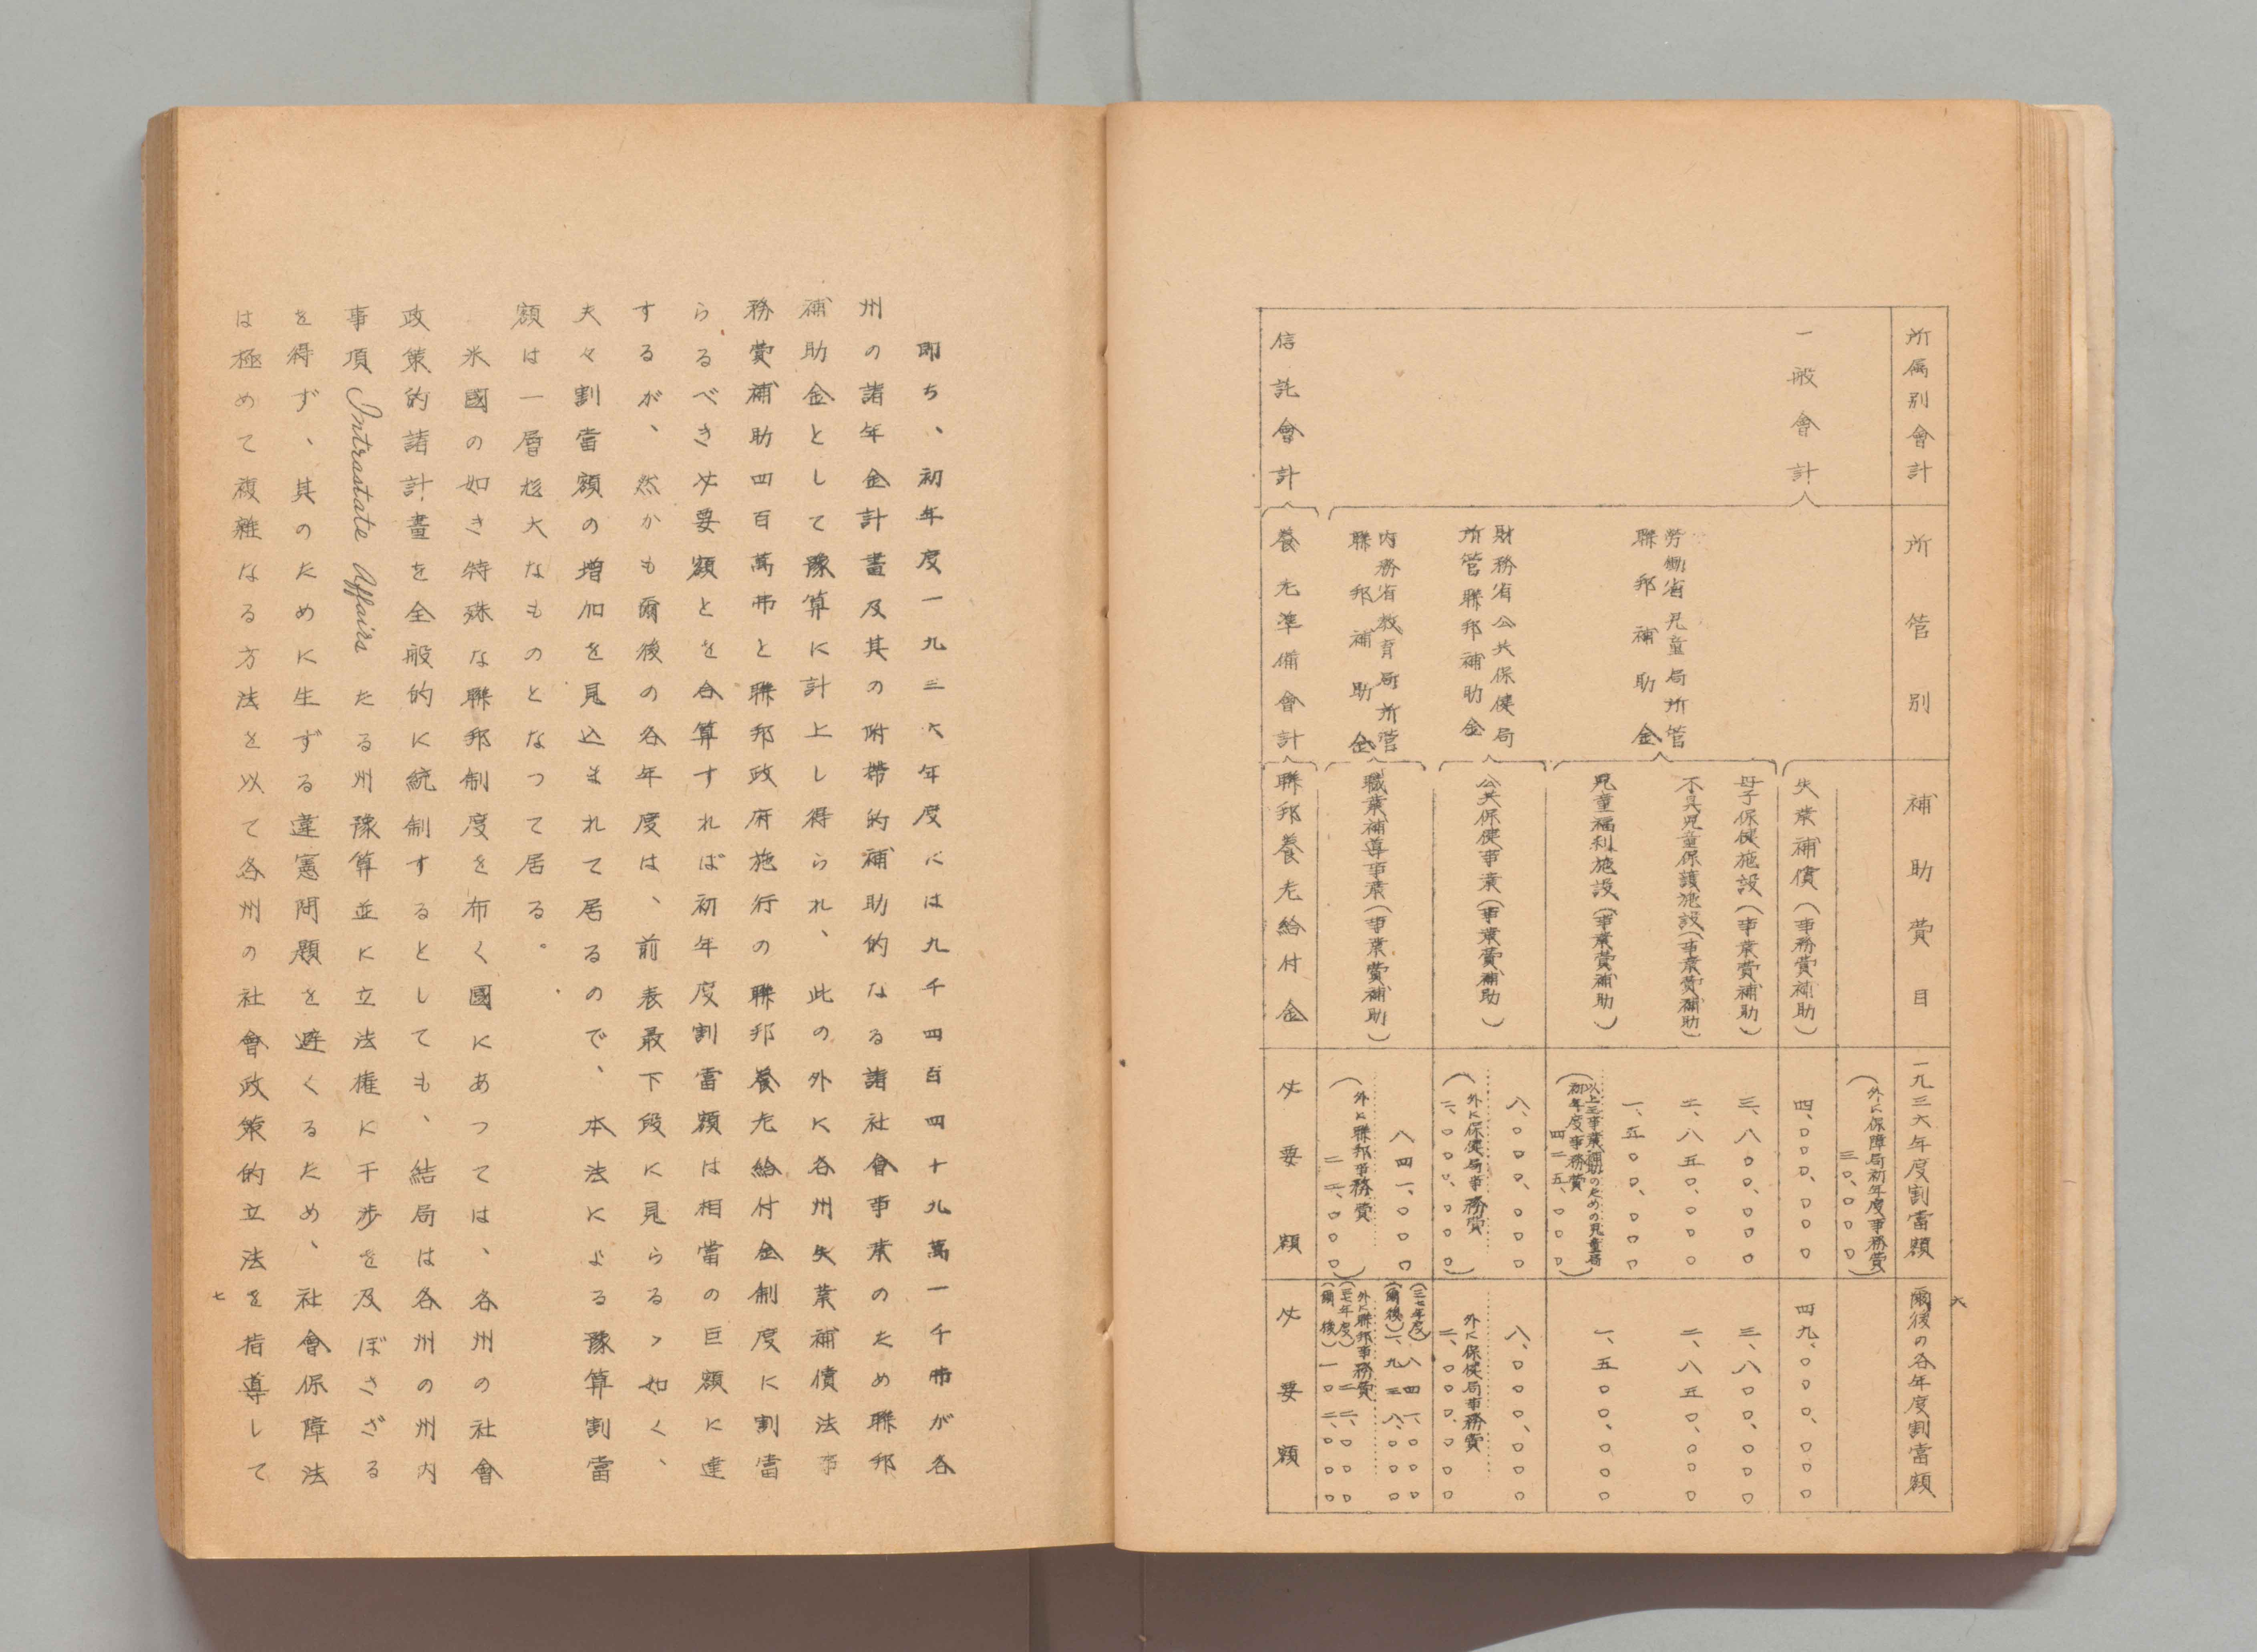 六
所属別會計
所管別
補助費目
一九三六年度割當額
爾後の各年度割當額
一般會計
(外に保障局初年度事務費
三〇、〇〇〇)
失業補償(事務費補助)
四、〇〇〇、〇〇〇
四九、〇〇〇、〇〇〇
勞働省児童局所管
聯邦補助金
母子保健施設(事業費補助)
三、八〇〇、〇〇〇
三、八〇〇、〇〇〇
不具児童保護施設(事業費補助)
二、八五〇、〇〇〇
二、八五〇、〇〇〇
児童福利施設(事業費補助)
一、五〇〇、〇〇〇
一、五〇〇、〇〇〇
(以上三事業補助のための児童局
初年度事務費
四二五、〇〇〇)
財務省公共保健局
所管聯邦補助金
公共保健事業(事業費補助)
八、〇〇〇、〇〇〇
八、〇〇〇、〇〇〇
(外に保健局事務費
二、〇〇〇、〇〇〇)
外に保健局事務費
二、〇〇〇、〇〇〇
内務省教育局所管
聯邦補助金
職業補導事業(事業費補助)
八四一、〇〇〇
(三七年度)八四一、〇〇〇
(爾後)一、九三八、〇〇〇
(外に聯邦事務費
二二、〇〇〇)
外に聯邦事務費
(三七年度)二二、〇〇〇
(爾後)一〇二、〇〇〇
信託會計
養老準備會計
聯邦養老給付金
必要額
必要額
即ち、初年度一九三六年度には九千四百四十九萬一千弗が各
州の諸年金計畫及其の附帶的補助的なる諸社會事業のため聯邦
補助金として豫算に計上し得られ、此の外に各州失業補償法事
務費補助四百萬弗と聯邦政府施行の聯邦養老給付金制度に割當
らるべき必要額とを合算すれば初年度割當額は相當の巨額に達
するが、然かも爾後の各年度は、前表最下段に見らるゝ如く、
夫々割當額の増加を見込まれて居るので、本法による豫算割當
額は一層尨大なものとなつて居る。
米國の如き特殊な聯邦制度を布く國にあつては、各州の社會
政策的諸計畫を全般的に統制するとしても、結局は各州の州内
事項 Intrastate Affairs たる州豫算並に立法權に干渉を及ぼさざる
を得ず、其のために生ずる違憲問題を避くるため、社會保障法
は極めて複雜なる方法を以て各州の社會政策的立法を指導して
七